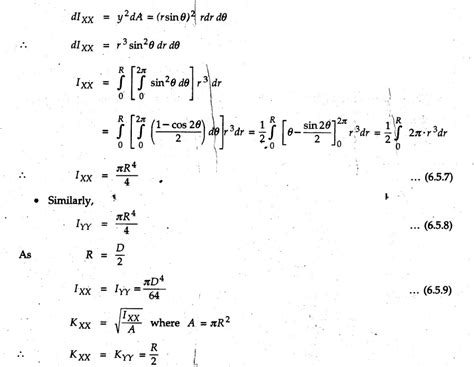 dI_XX = y²dA = (r sin θ)² r dr dθ
∴ dI_XX = r³ sin²θ dr dθ
I_XX = ∫₀^R [∫₀^2π sin²θ dθ] r³ dr
= ∫₀^R [∫₀^2π ((1 − cos 2θ)/2) dθ] r³ dr = 1/2 ∫₀^R [θ − sin 2θ/2]₀^2π r³ dr = 1/2 ∫₀^R 2π · r³ dr
∴ I_XX = πR⁴/4 ... (6.5.7)
• Similarly,
I_YY = πR⁴/4 ... (6.5.8)
As R = D/2
I_XX = I_YY = πD⁴/64 ... (6.5.9)
K_XX = √(I_XX/A) where A = πR²
∴ K_XX = K_YY = R/2